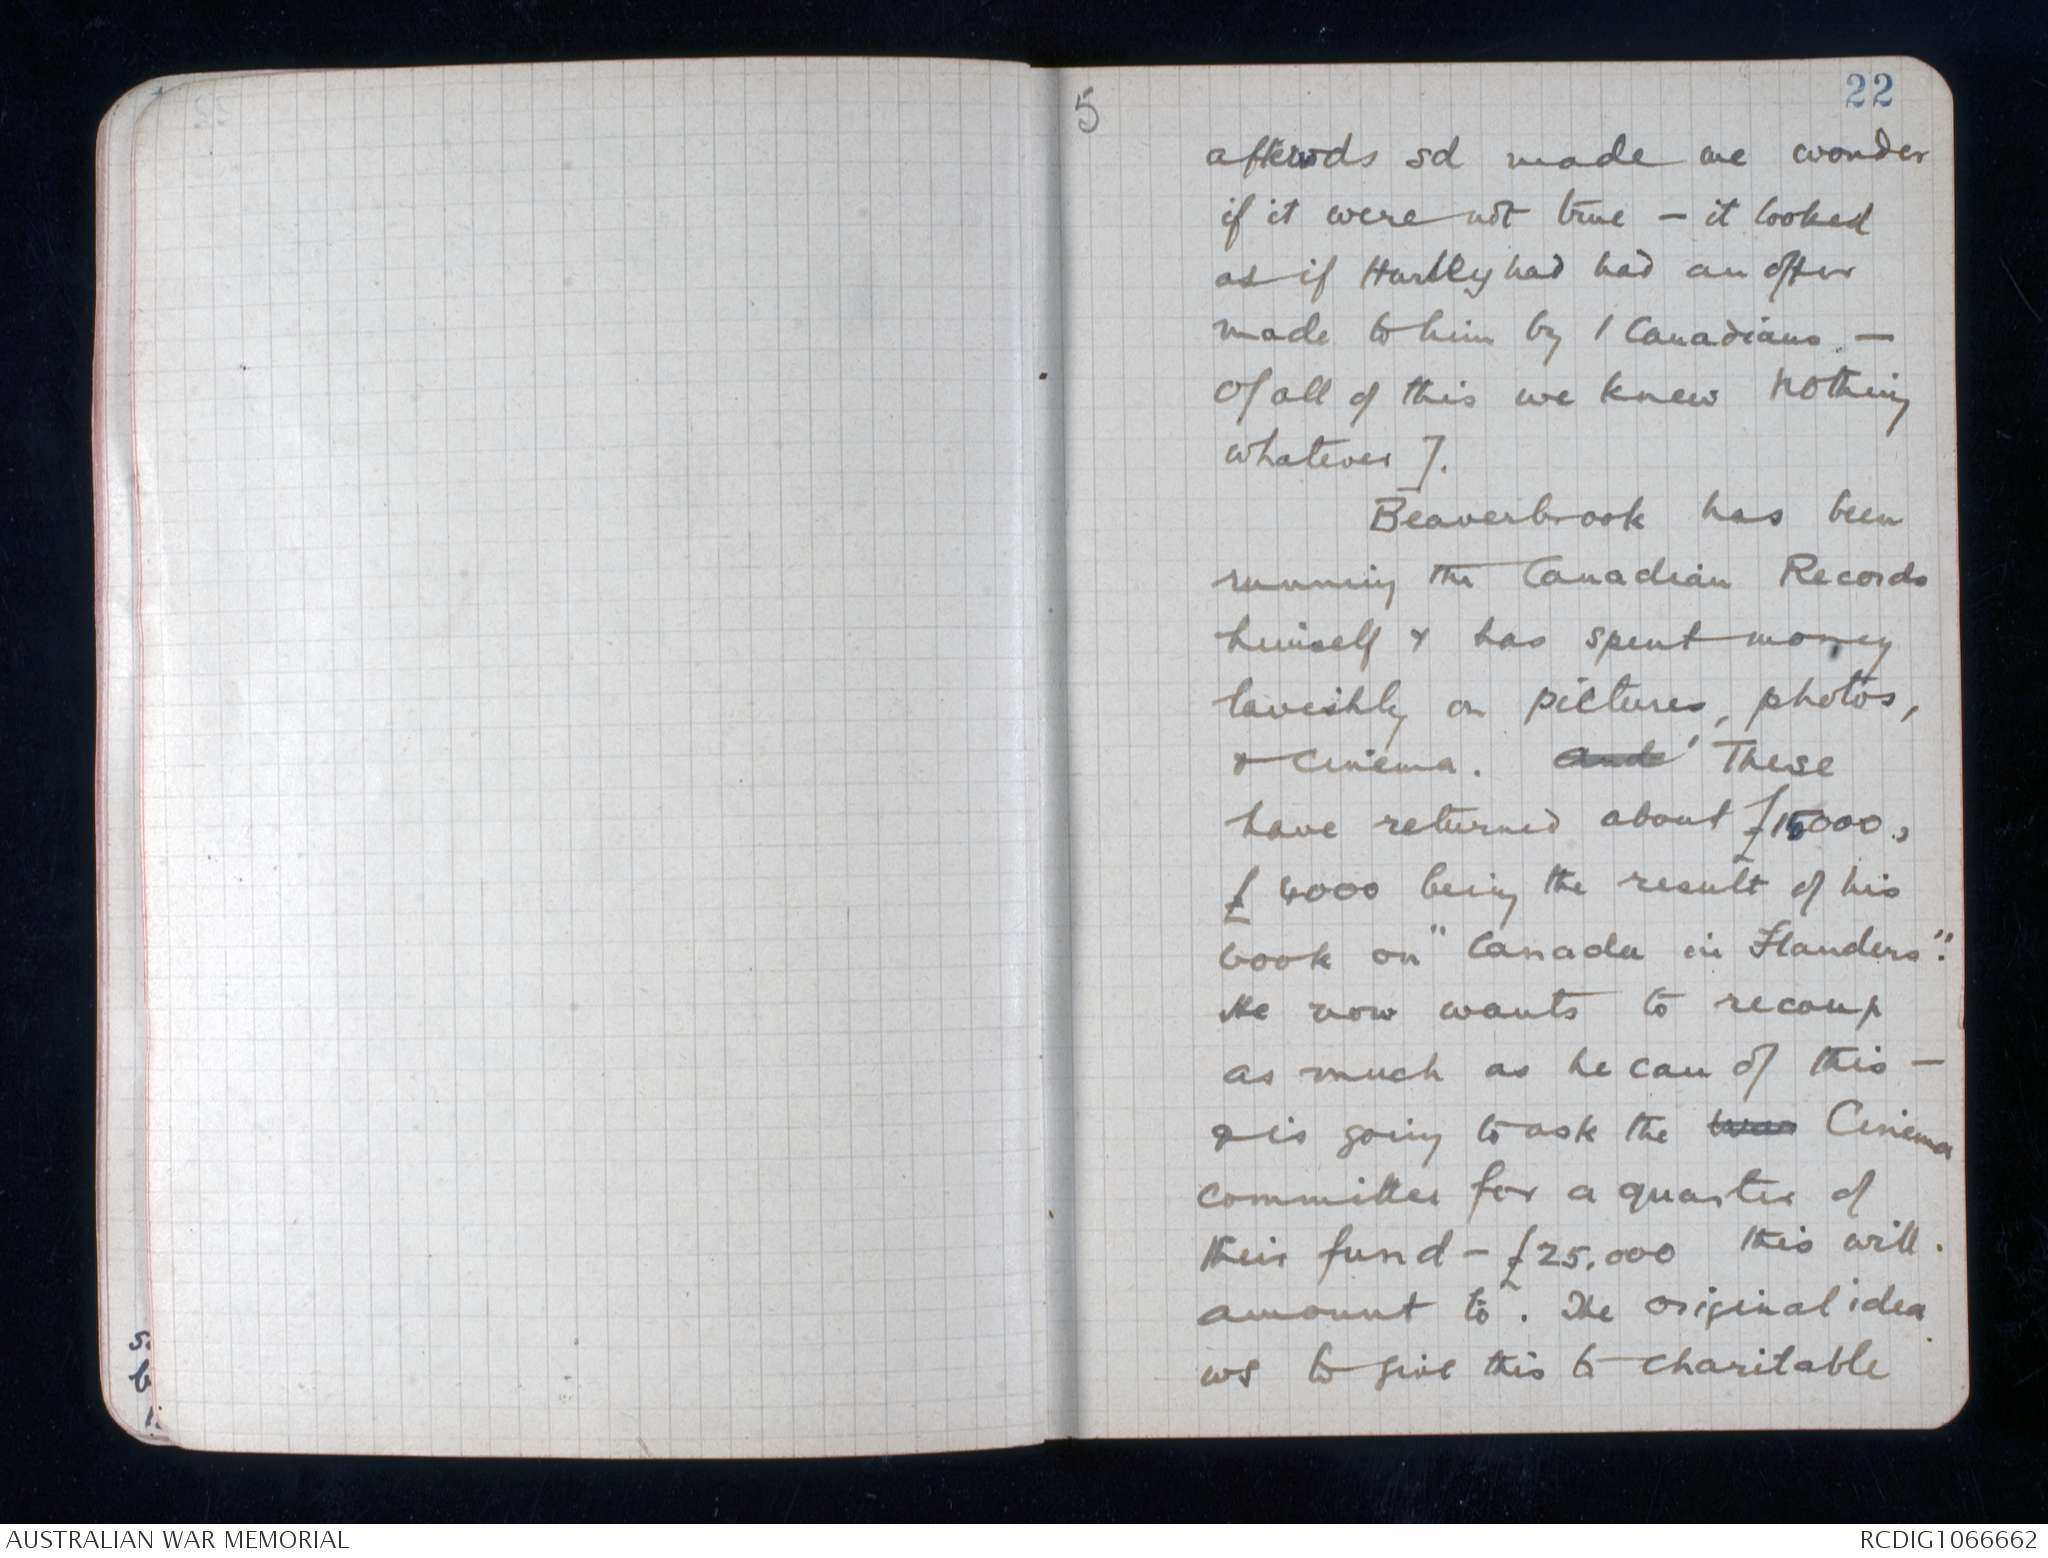 22
5
afterwds sd made me wonder
if it were not true – it looked
as if Hurley had had an offer
made to him by / Canadians. –
Of all of this we knew nothing
whatever ].
Beaverbrook has been
running the Canadian Records
himself & has spent money
lavishly on pictures, photos,
& cinema. and These
have returned about £15000,
£ 4000 being the result of his
book on "Canada in Flanders".
He now wants to recoup
as much as he can of this –
& is going to ask the was Cinema
committee for a quarter of
their fund – £25,000 this will
amount to. The original idea
ws to give this to charitable
s.
b
AUSTRALIAN WAR MEMORIAL
RCDIG1066662